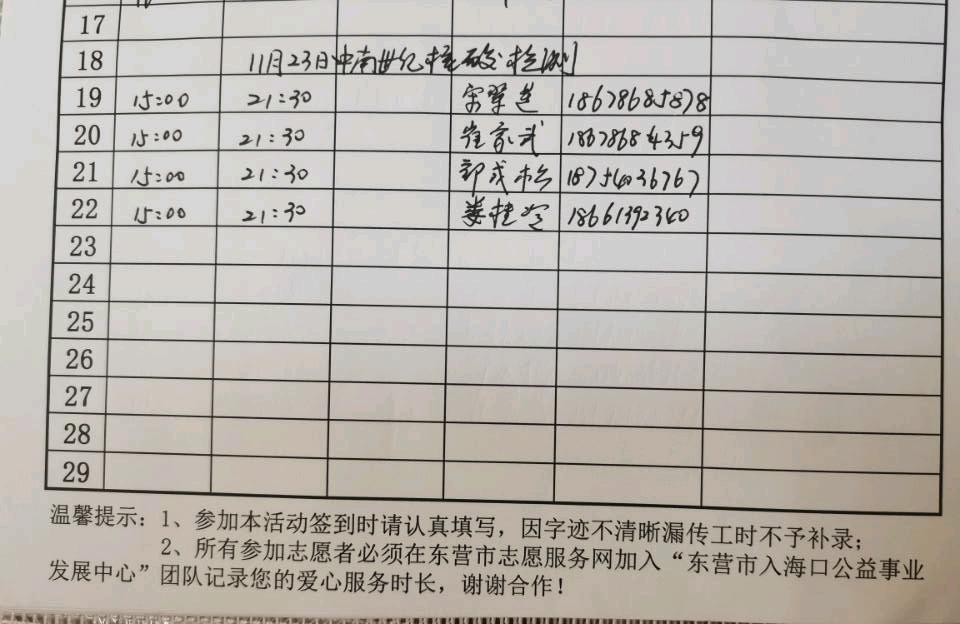 17
18 11月23日中南世纪核酸检测
19 15:00 21:30 宋翠莲 18678685878
20 15:00 21:30 崔家武 18678684359
21 15:00 21:30 郭成松 18754036767
22 15:00 21:30 娄桂堂 18661392340
23
24
25
26
27
28
29
温馨提示：1、参加本活动签到时请认真填写，因字迹不清晰漏传工时不予补录；
2、所有参加志愿者必须在东营市志愿服务网加入“东营市入海口公益事业
发展中心”团队记录您的爱心服务时长，谢谢合作！